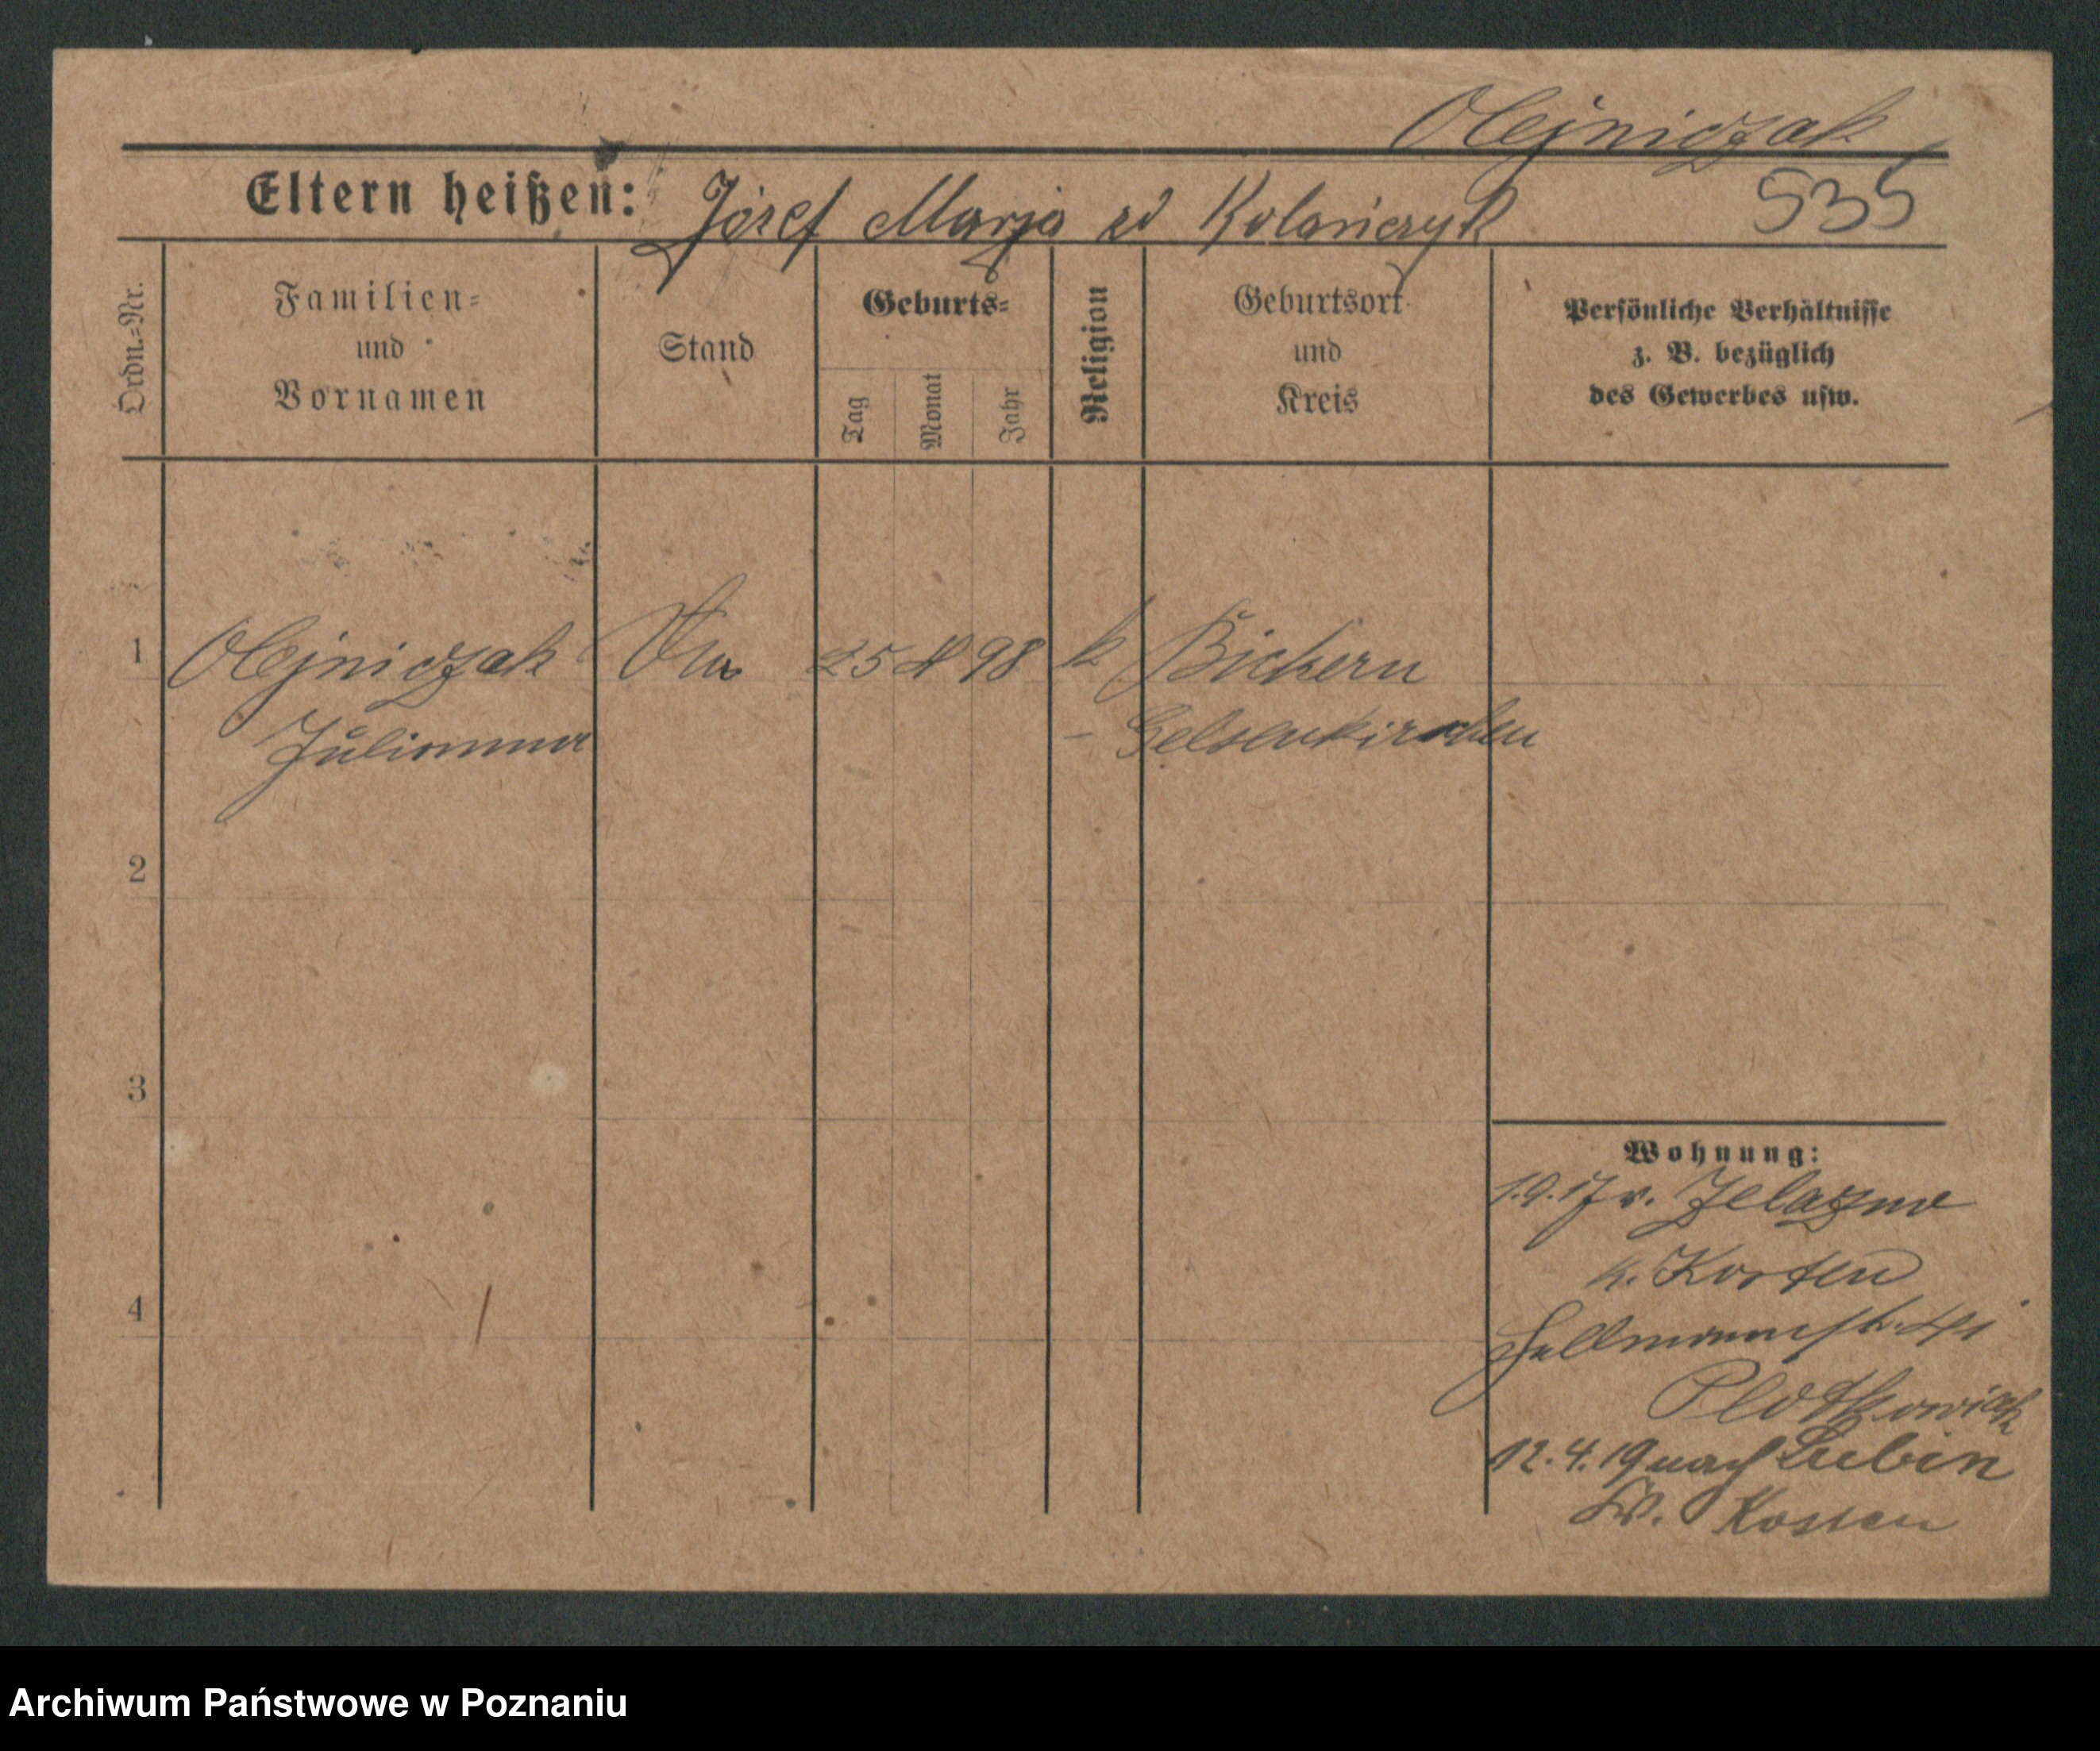 Olejniczak
Eltern heißen: Józef Marja zd Kolańczyk 535
Ordn.=Nr.
Familien=
und
Vornamen
Stand
Geburts=
Tag
Monat
Jahr
Religion
Geburtsort
und
Kreis
Persönliche Verhältnisse
z. B. bezüglich
des Gewerbes usw.
1 Olejniczak 25 98 k Bickern
Julianna - Gelsenkirchen
2
3
4
Wohnung:
1.9.17 v. Zelazno
k. Kosten
12.4.19 nach Lubin
Kr. Kosten
Archiwum Państwowe w Poznaniu